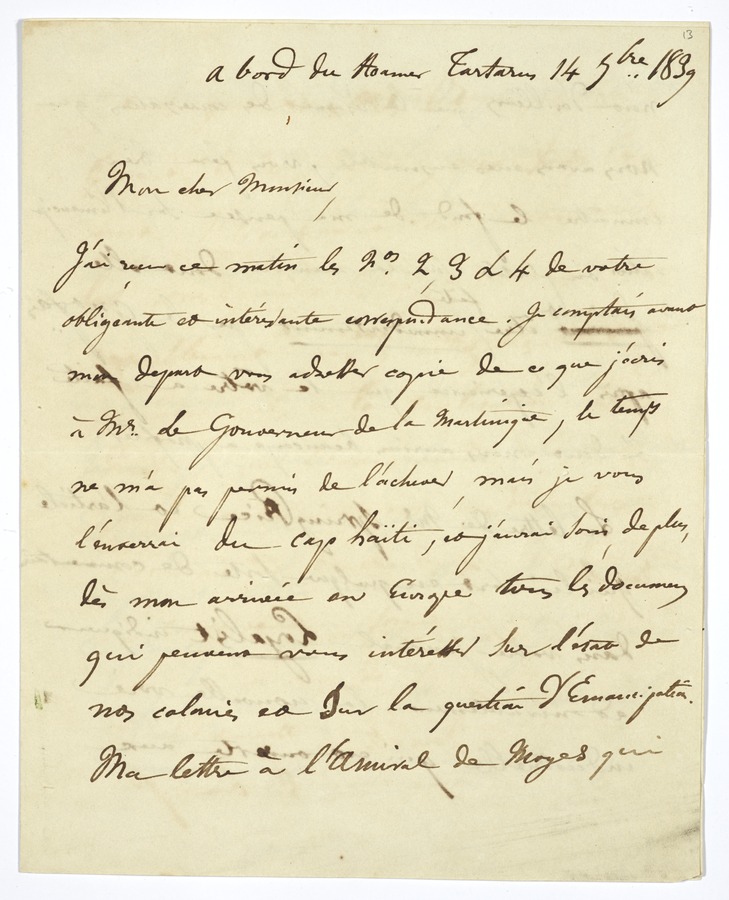 13
a bord du Steamer Tartarus 14 7bre 1839
Mon cher Monsieur,
J'ai reçu ce matin les Nos. 2, 3 & 4 de votre
obligeante et intéressante correspondance. Je comptais avant
mon depart vous adresser copie de ce que j'écris
à Mr. le Gouverneur de la Martinique, le temps
ne m'a pas permis de l'achever, mais je vous
l'enverrai du cap haïti, et j'aurai soin, de plus,
dès mon arrivée en Europe tous les documens
qui peuvent vous intéresser sur l'état de
nos colonies et sur la question d'Emancipation.
Ma lettre à l'Amiral de Moges qui